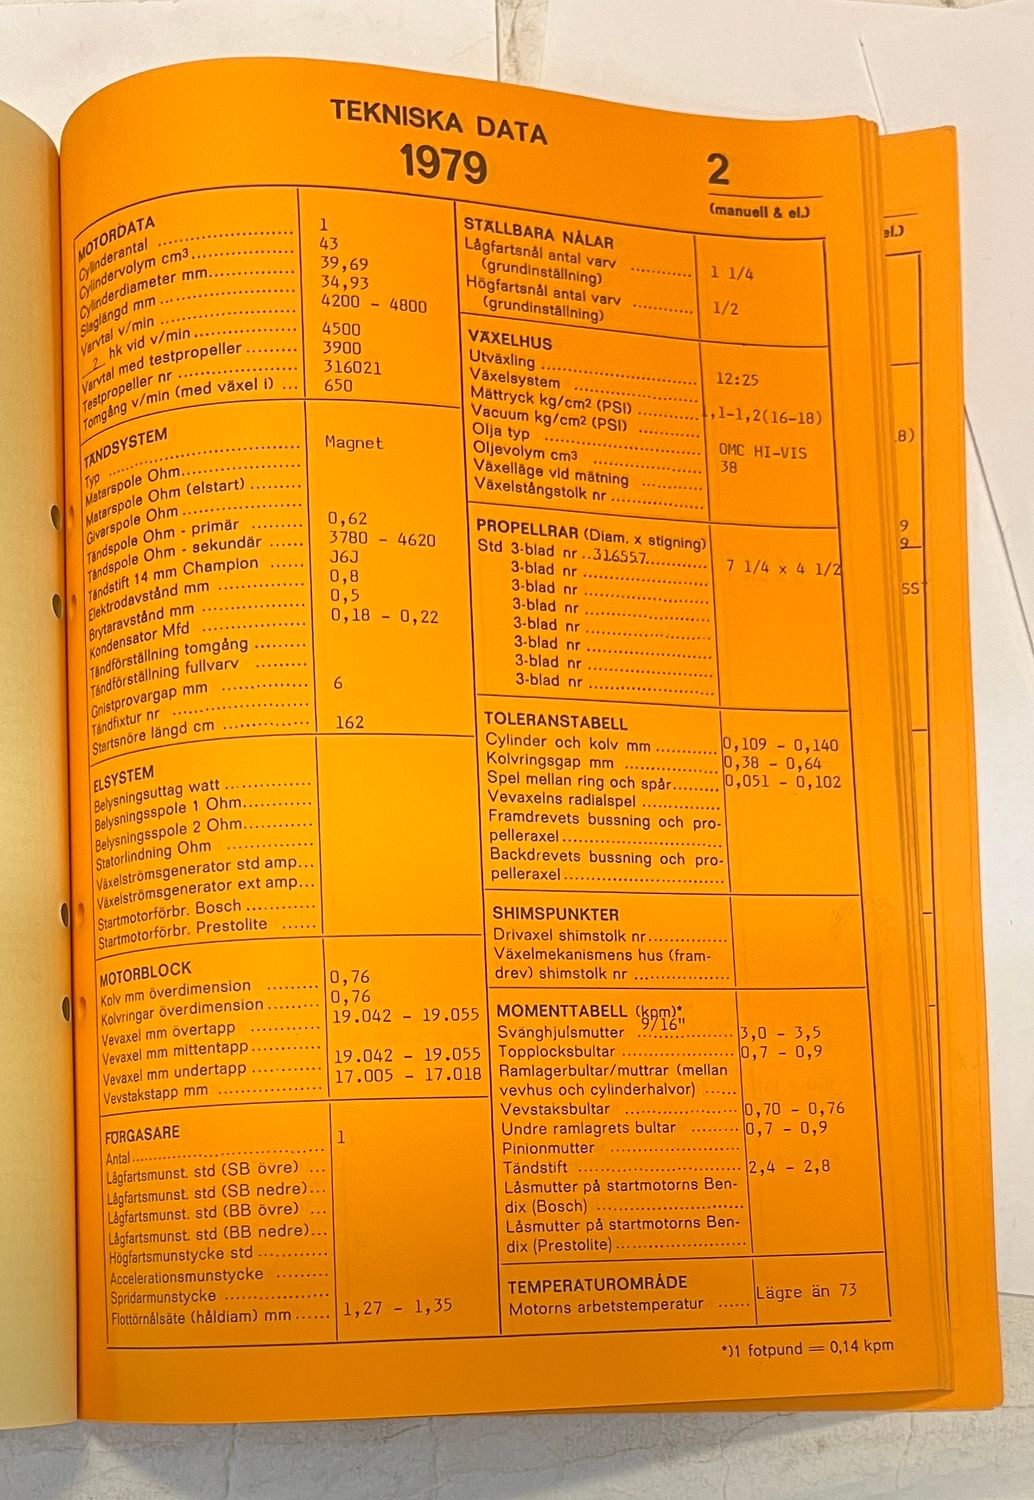 TEKNISKA DATA
1979
2
(manuell & el.)
MOTORDATA
Cylinderantal .......... 1
Cylindervolym cm³ .......... 43
Cylinderdiameter mm .......... 39,69
Slaglängd mm .......... 34,93
Varvtal v/min .......... 4200 - 4800
2 hk vid v/min .......... 4500
Varvtal med testpropeller .......... 3900
Testpropeller nr .......... 316021
Tomgång v/min (med växel i) ... 650
TÄNDSYSTEM
Typ .......... Magnet
Matarspole Ohm ..........
Matarspole Ohm (elstart) ..........
Givarspole Ohm ..........
Tändspole Ohm - primär .......... 0,62
Tändspole Ohm - sekundär ...... 3780 - 4620
Tändstift 14 mm Champion ...... J6J
Elektrodavstånd mm .......... 0,8
Brytaravstånd mm .......... 0,5
Kondensator Mfd .......... 0,18 - 0,22
Tändförställning tomgång ..........
Tändförställning fullvarv ..........
Gnistprovargap mm .......... 6
Tändfixtur nr ..........
Startsnöre längd cm .......... 162
ELSYSTEM
Belysningsuttag watt ..........
Belysningsspole 1 Ohm ..........
Belysningsspole 2 Ohm ..........
Statorlindning Ohm ..........
Växelströmsgenerator std amp...
Växelströmsgenerator ext amp...
Startmotorförbr. Bosch ..........
Startmotorförbr. Prestolite ......
MOTORBLOCK
Kolv mm överdimension .......... 0,76
Kolvringar överdimension .......... 0,76
Vevaxel mm övertapp .......... 19.042 - 19.055
Vevaxel mm mittentapp ..........
Vevaxel mm undertapp .......... 19.042 - 19.055
Vevstakstapp mm .......... 17.005 - 17.018
FÖRGASARE
Antal .......... 1
Lågfartsmunst. std (SB övre) ...
Lågfartsmunst. std (SB nedre)...
Lågfartsmunst. std (BB övre) ...
Lågfartsmunst. std (BB nedre)...
Högfartsmunstycke std ..........
Accelerationsmunstycke ..........
Spridarmunstycke ..........
Flottörnålsäte (håldiam) mm ...... 1,27 - 1,35
STÄLLBARA NÅLAR
Lågfartsnål antal varv
(grundinställning) .......... 1 1/4
Högfartsnål antal varv
(grundinställning) .......... 1/2
VÄXELHUS
Utväxling .......... 12:25
Växelsystem ..........
Mättryck kg/cm² (PSI) .......... 1,1-1,2(16-18)
Vacuum kg/cm² (PSI) ..........
Olja typ .......... OMC HI-VIS
Oljevolym cm³ .......... 38
Växelläge vid mätning ..........
Växelstångstolk nr ..........
PROPELLRAR (Diam. x stigning)
Std 3-blad nr ..316557.......... 7 1/4 x 4 1/2
3-blad nr ..........
3-blad nr ..........
3-blad nr ..........
3-blad nr ..........
3-blad nr ..........
3-blad nr ..........
3-blad nr ..........
TOLERANSTABELL
Cylinder och kolv mm .......... 0,109 - 0,140
Kolvringsgap mm .......... 0,38 - 0,64
Spel mellan ring och spår.......... 0,051 - 0,102
Vevaxelns radialspel ..........
Framdrevets bussning och pro-
pelleraxel ..........
Backdrevets bussning och pro-
pelleraxel ..........
SHIMSPUNKTER
Drivaxel shimstolk nr ..........
Växelmekanismens hus (fram-
drev) shimstolk nr ..........
MOMENTTABELL (kpm)*
9/16"
Svänghjulsmutter .......... 3,0 - 3,5
Topplocksbultar .......... 0,7 - 0,9
Ramlagerbultar/muttrar (mellan
vevhus och cylinderhalvor) ......
Vevstaksbultar .......... 0,70 - 0,76
Undre ramlagrets bultar .......... 0,7 - 0,9
Pinionmutter ..........
Tändstift .......... 2,4 - 2,8
Låsmutter på startmotorns Ben-
dix (Bosch) ..........
Låsmutter på startmotorns Ben-
dix (Prestolite) ..........
TEMPERATUROMRÅDE
Motorns arbetstemperatur ...... Lägre än 73
*)1 fotpund = 0,14 kpm